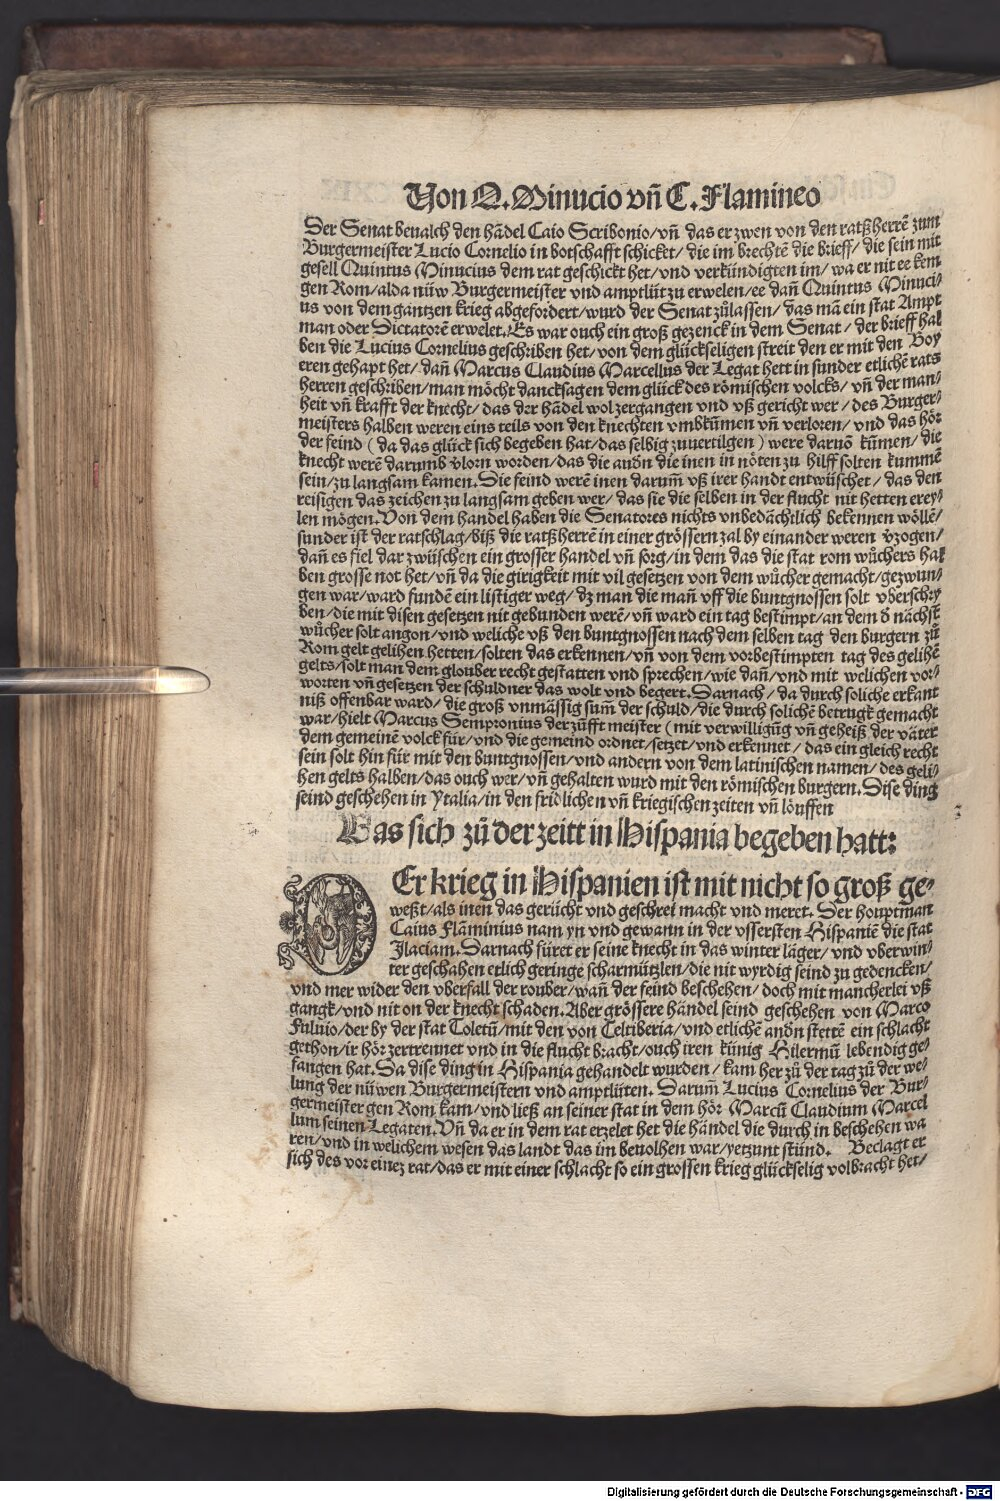 Von Q. Minucio vñ C. Flamineo
Der Senat beualch den hãdel Caio Scribonio/vñ das er zwen von den ratßherrẽ zum
Burgermeister Lucio Cornelio in botschafft schicket/die im brechtẽ die brieff/die sein mit
gesell Quintus Minucius dem rat geschickt het/vnd verkündigten im/wa er nit ee kem
gen Rom/alda nüw Burgermeister vnd amptlüt zu erwelen/ee dañ Quintus Minuci⸗
us von dem gantzen krieg abgefordert/wurd der Senat zůlassen/das mã ein stat Ampt
man oder Dictatorẽ erwelet. Es war ouch ein groß gezenck in dem Senat/der brieff hal
ben die Lucius Cornelius geschriben het/von dem glückseligen streit den er mit den Boy
eren gehapt het/dañ Marcus Claudius Marcellus der Legat hett in sunder etlichẽ rats
herren geschriben/man möcht dancksagen dem glück des römischen volcks/vñ der man⸗
heit vñ krafft der knecht/das der hãdel wol zergangen vnd vß gericht wer/des Burger⸗
meisters halben weren eins teils von den knechten vmbkũmen vñ verloren/vnd das hör
der feind (da das glück sich begeben hat/das selbig zuuertilgen) were daruõ kũmen/die
knecht werẽ darumb v̓lorn worden/das die andn̄ die inen in nöten zu hilff solten kummẽ
sein/zu langsam kamen. Die feind werẽ inen darum̃ vß irer handt entwüschet/das den
reisigen das zeichen zu langsam geben wer/das sie die selben in der flucht nit hetten erey⸗
len mögen. Von dem handel haben die Senatores nichts vnbedächtlich bekennen wöllẽ/
sunder ist der ratschlag/biß die ratßherrẽ in einer grössern zal by einander weren v̓zogen/
dañ es fiel dar zwüschen ein grosser handel vñ sorg/in dem das die stat rom wůchers hal
ben grosse not het/vñ da die girigkeit mit vil gesetzen von dem wůcher gemacht/gezwun⸗
gen war/ward fundẽ ein listiger weg/dz man die mañ vff die buntgnossen solt vberschry
ben/die mit disen gesetzen nit gebunden werẽ/vñ ward ein tag bestimpt/an dem d̓ nächst
wůcher solt angon/vnd weliche vß den buntgnossen nach dem selben tag den burgern zů
Rom gelt gelihen hetten/solten das erkennen/vñ von dem vorbestimpten tag des gelihẽ
gelts/solt man dem glouber recht gestatten vnd sprechen/wie dañ/vnd mit welichen vor⸗
worten vñ gesetzen der schuldner das wolt vnd begert. Darnach/da durch soliche erkant
niß offenbar ward/die groß vnmässig sum̃ der schuld/die durch solichẽ betrugk gemacht
war/hielt Marcus Sempronius der zũfft meister (mit verwilligũg vñ geheiß der väter
dem gemeinẽ volck für/vnd die gemeind ordnet/setzet/vnd erkennet/das ein gleich recht
sein solt hin für mit den buntgnossen/vnd andern von dem latinischen namen/des geli⸗
hen gelts halben/das ouch wer/vñ gehalten wurd mit den römischen burgern. Dise ding
seind geschehen in Ytalia/in den fridlichen vñ kriegischen zeiten vñ löuffen
Das sich zů der zeitt in Hispania begeben hatt:
DEr krieg in Hispanien ist mit nicht so groß ge⸗
weßt/als inen das gerücht vnd geschrei macht vnd meret. Der houptman
Caius Flãminius nam yn vnd gewann in der vssersten Hispaniẽ die stat
Jlaciam. Darnach füret er seine knecht in das winter läger/vnd vberwin⸗
ter geschahen etlich geringe scharmützlen/die nit wyrdig seind zu gedencken/
vnd mer wider den vberfall der rouber/wañ der feind beschehen/doch mit mancherlei vß
gangk/vnd nit on der knecht schaden. Aber grössere händel seind geschehen von Marco
Fuluio/der by der stat Toletũ/mit den von Celtiberia/vnd etlichẽ andn̄ stettẽ ein schlacht
gethon/ir hör zertrennet vnd in die flucht bracht/ouch iren künig Hilermũ lebendig ge⸗
fangen hat. Da dise ding in Hispania gehandelt wurden/kam her zů der tag zů der we⸗
lung der nüwen Burgermeistern vnd amptlüten. Darum̃ Lucius Cornelius der Bur⸗
germeister gen Rom kam/vnd ließ an seiner stat in dem hör Marcũ Claudium Marcel
lum seinen Legaten. Vñ da er in dem rat erzelet het die händel die durch in beschehen wa
ren/vnd in welichem wesen das landt das im beuolhen war/yetzunt stünd. Beclagt er
sich des vor einez rat/das er mit einer schlacht so ein grossen krieg glückselig volbracht het/
Digitalisierung gefördert durch die Deutsche Forschungsgemeinschaft - DFG